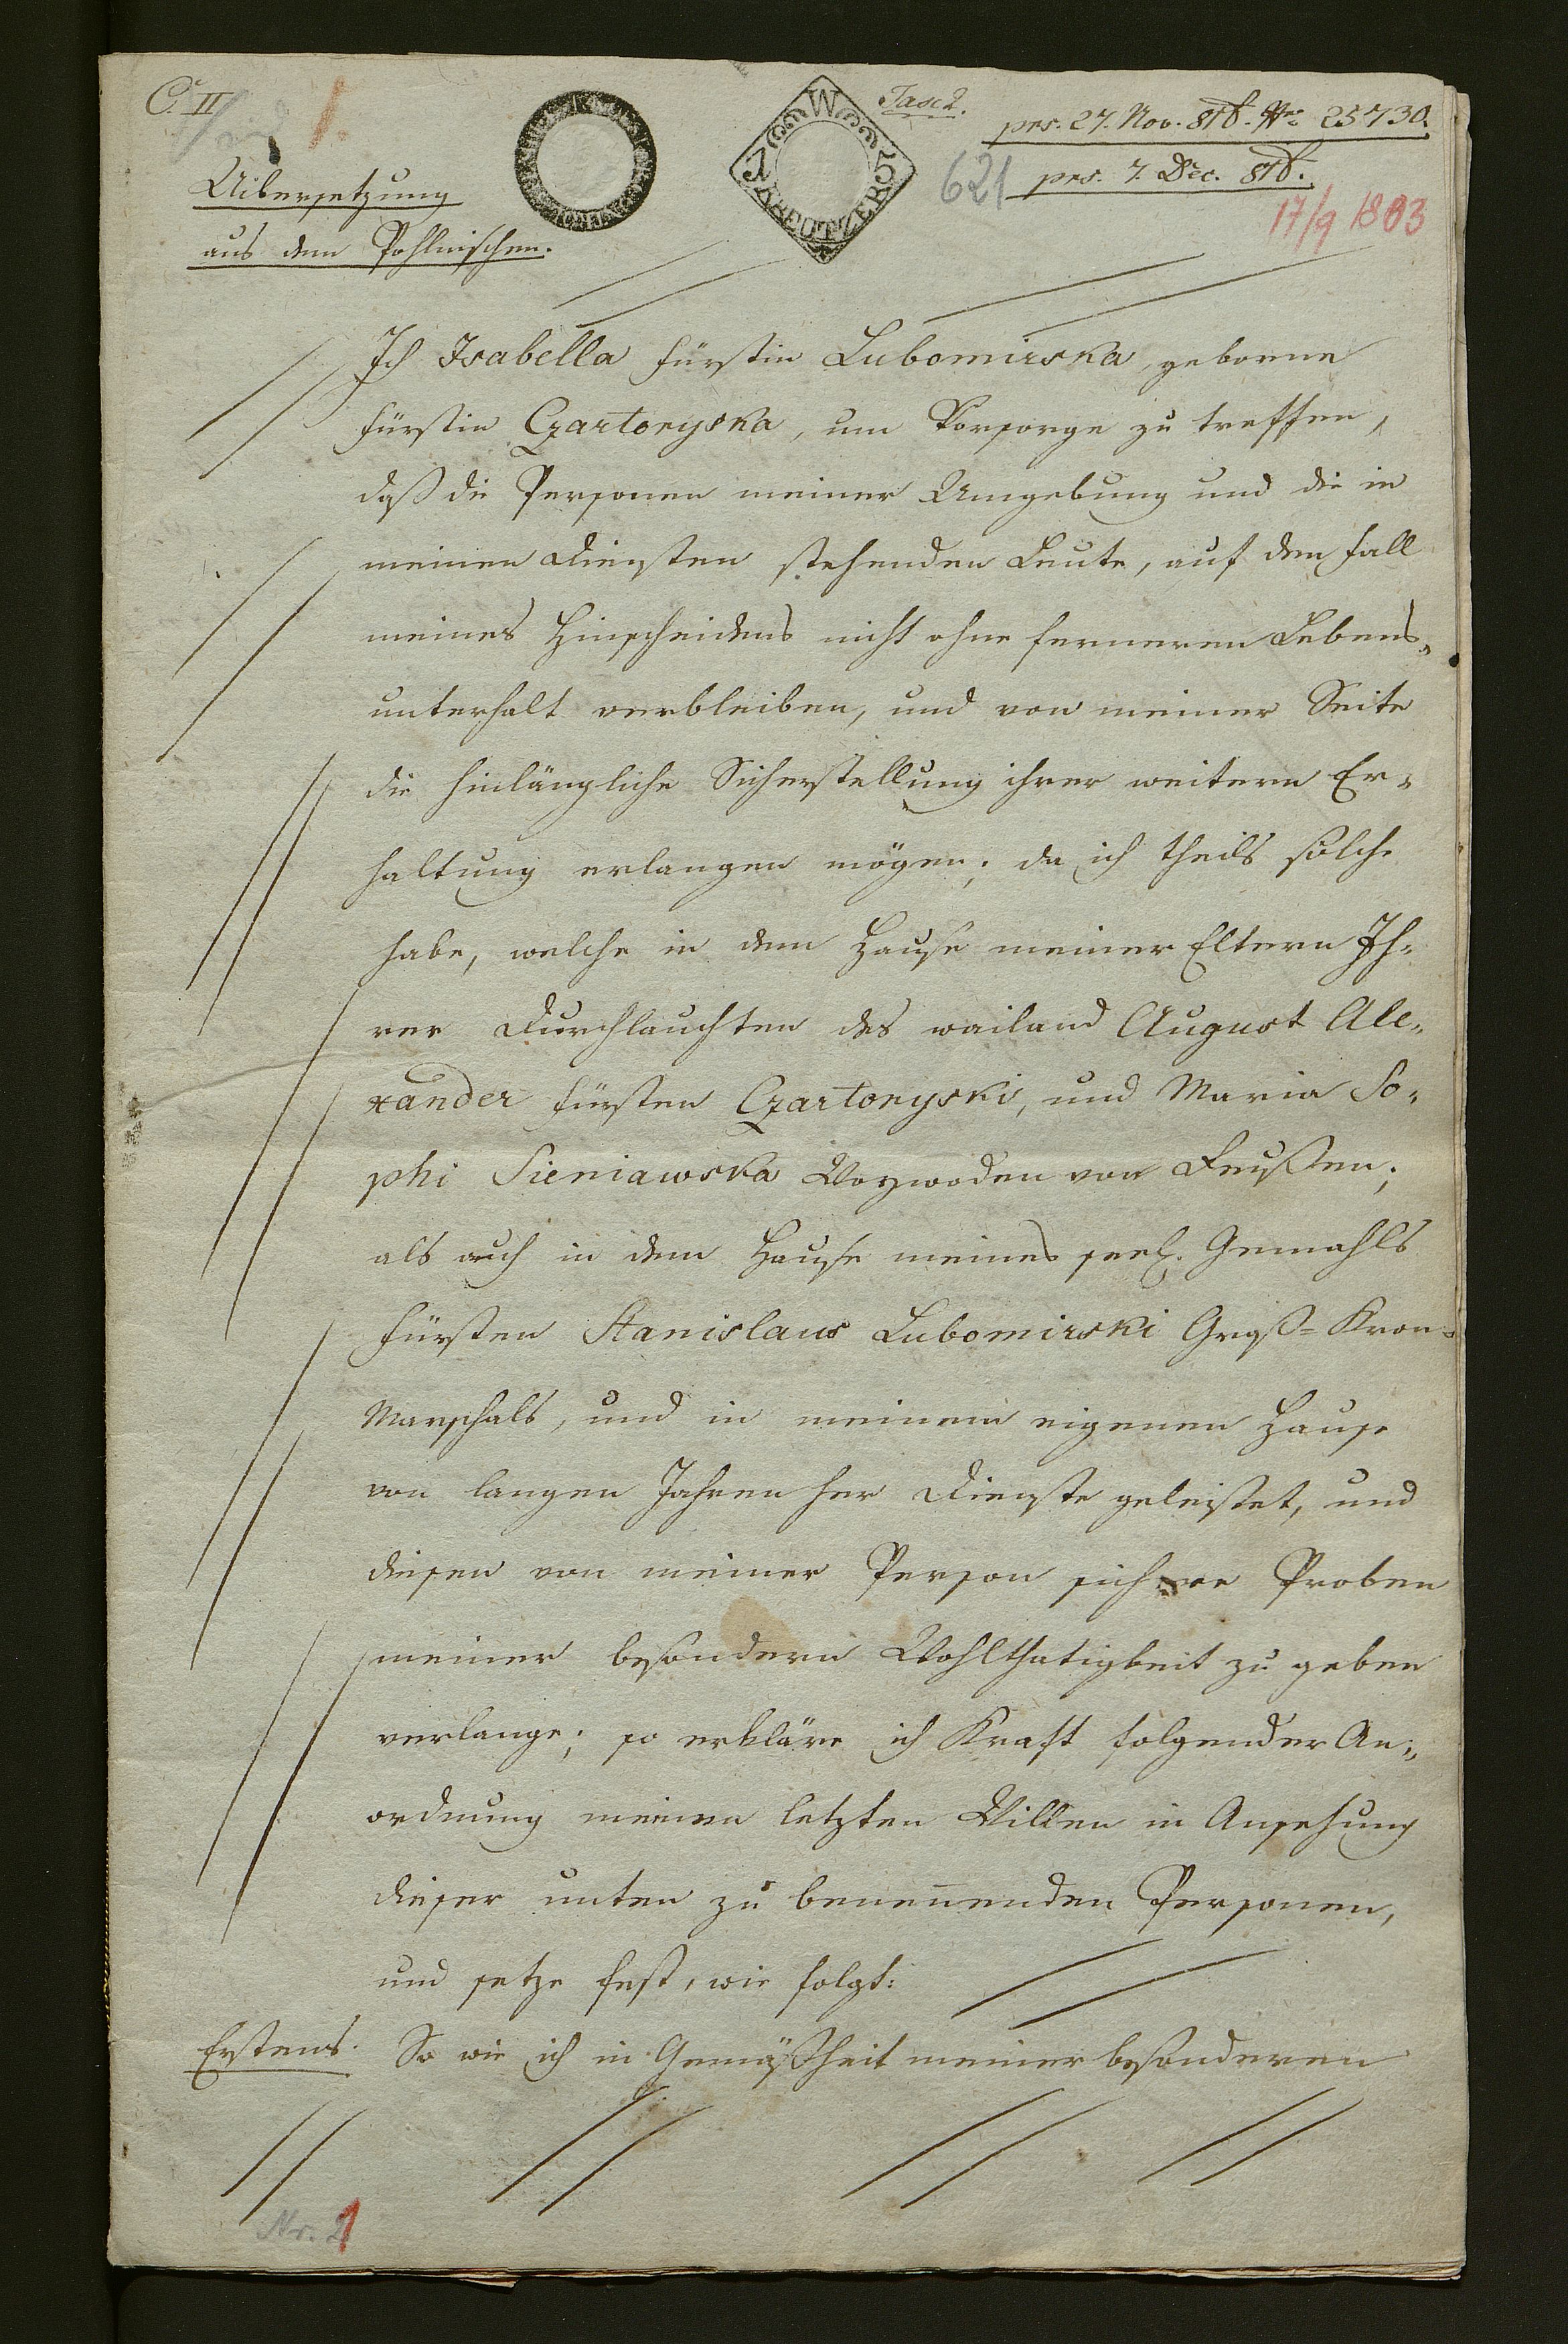 C. II
1.
Fasc 2.
prs. 27. Nov. 816. Nro 25730.
621 prs. 7. Dec. 816.
17/9 1803
W
15
KREUTZER
Uibersetzung
aus dem Pohlnischen.
Ich Isabella Fürstin Lubomirska, geborne
Fürstin Czartoryska, um Vorsorge zu treffen,
daß die Personen meiner Umgebung und die in
meinen Diensten stehenden Leute, auf den Fall
meines Hinscheidens nicht ohne ferneren Lebens„
unterhalt verbleiben, und von meiner Seite
die hinlängliche Sicherstellung ihrer weitern Er„
haltung erlangen mögen; da ich theils solche
habe, welche in dem Hause meiner Eltern Ih„
rer Durchlauchten des wailand August Ale„
xander Fürsten Czartoryski, und Maria So„
phi Sieniawska Woywoden von Reußen;
als auch in dem Hause meines seel. Gemahls
Fürsten Stanislaus Lubomirski Groß-Kron-
Marschals, und in meinem eigenen Hause
von langen Jahren her Dienste geleistet, und
diesen von meiner Person sichere Proben
meiner besondern Wohlthatigkeit zu geben
verlange; so erkläre ich Kraft folgender An„
ordnung meinen letzten Willen in Ansehung
dieser unten zu benennenden Personen,
und setze fest, wie folgt:
Erstens. So wie ich in Gemäßheit meiner besonderen
Nr. 1